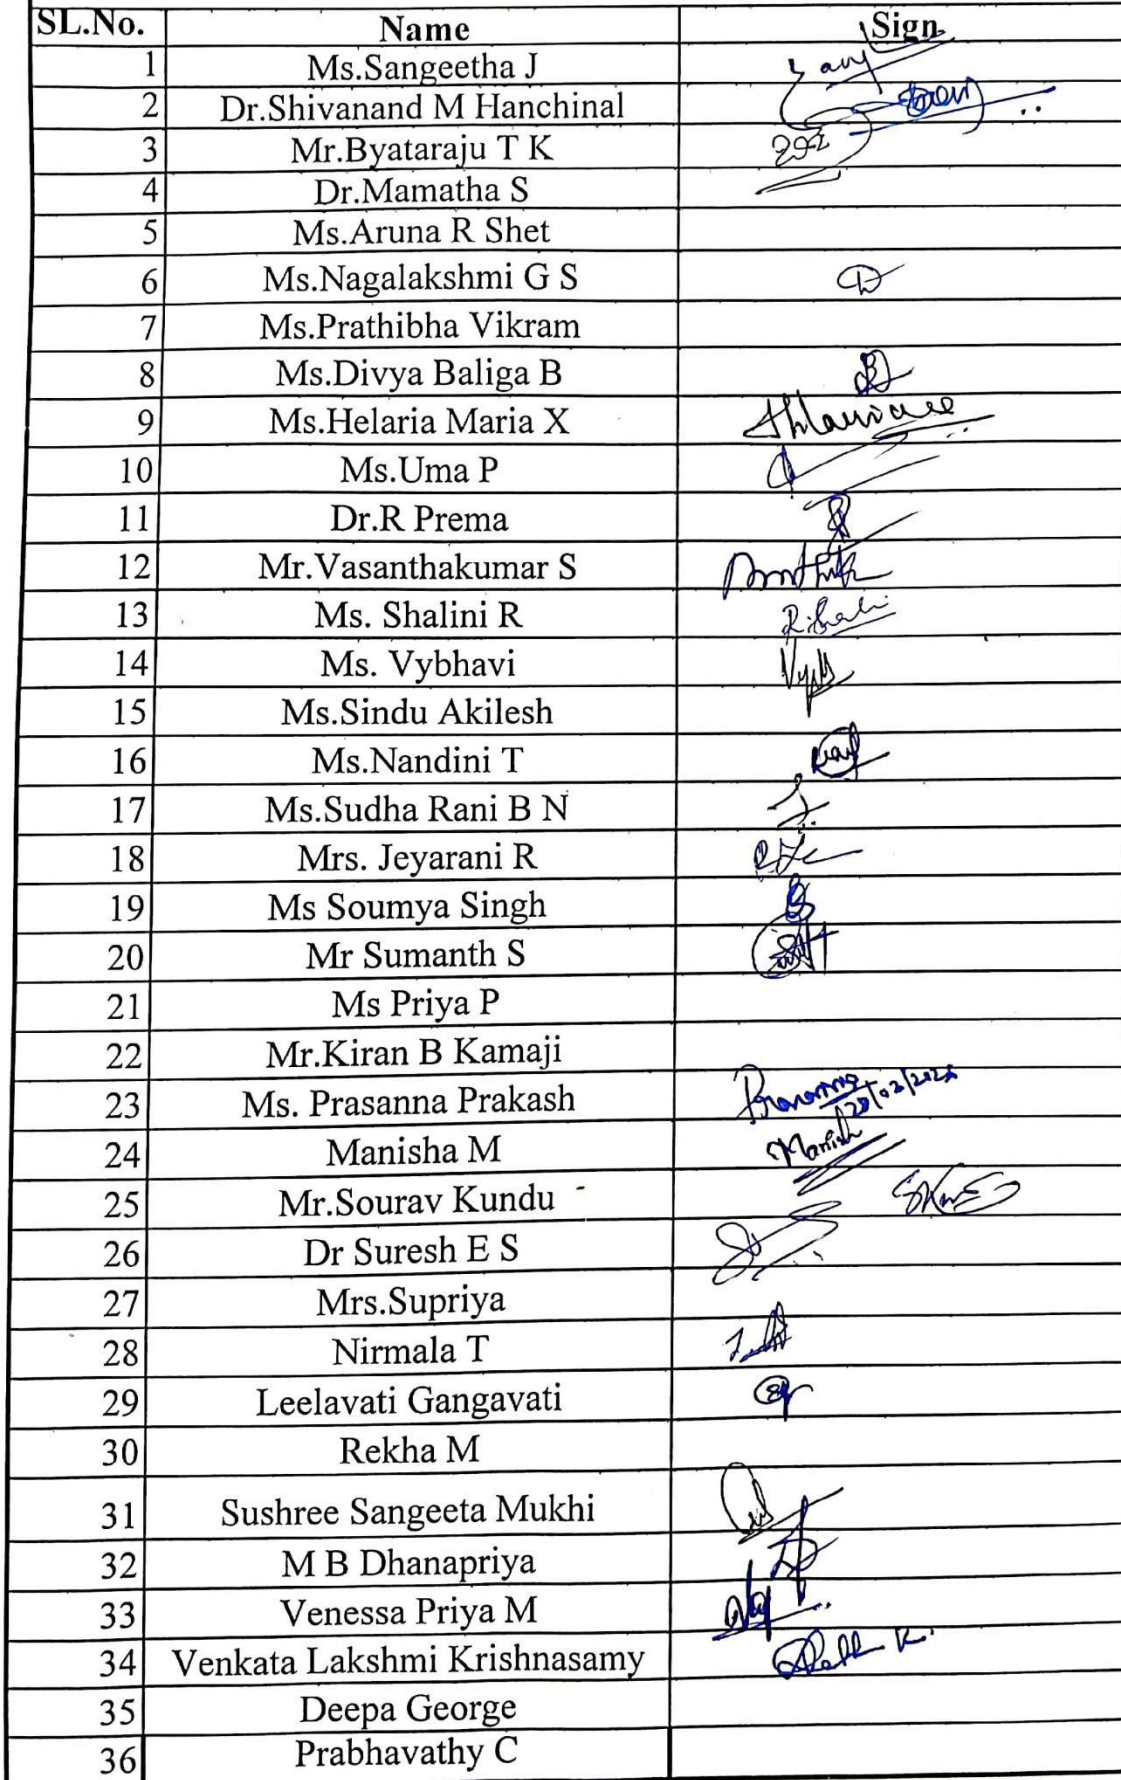 SL.No. Name Sign
1 Ms.Sangeetha J
2 Dr.Shivanand M Hanchinal
3 Mr.Byataraju T K
4 Dr.Mamatha S
5 Ms.Aruna R Shet
6 Ms.Nagalakshmi G S
7 Ms.Prathibha Vikram
8 Ms.Divya Baliga B
9 Ms.Helaria Maria X
10 Ms.Uma P
11 Dr.R Prema
12 Mr.Vasanthakumar S
13 Ms. Shalini R
14 Ms. Vybhavi
15 Ms.Sindu Akilesh
16 Ms.Nandini T
17 Ms.Sudha Rani B N
18 Mrs. Jeyarani R
19 Ms Soumya Singh
20 Mr Sumanth S
21 Ms Priya P
22 Mr.Kiran B Kamaji
23 Ms. Prasanna Prakash
24 Manisha M Manish
25 Mr.Sourav Kundu
26 Dr Suresh E S
27 Mrs.Supriya
28 Nirmala T
29 Leelavati Gangavati
30 Rekha M
31 Sushree Sangeeta Mukhi
32 M B Dhanapriya
33 Venessa Priya M
34 Venkata Lakshmi Krishnasamy
35 Deepa George
36 Prabhavathy C